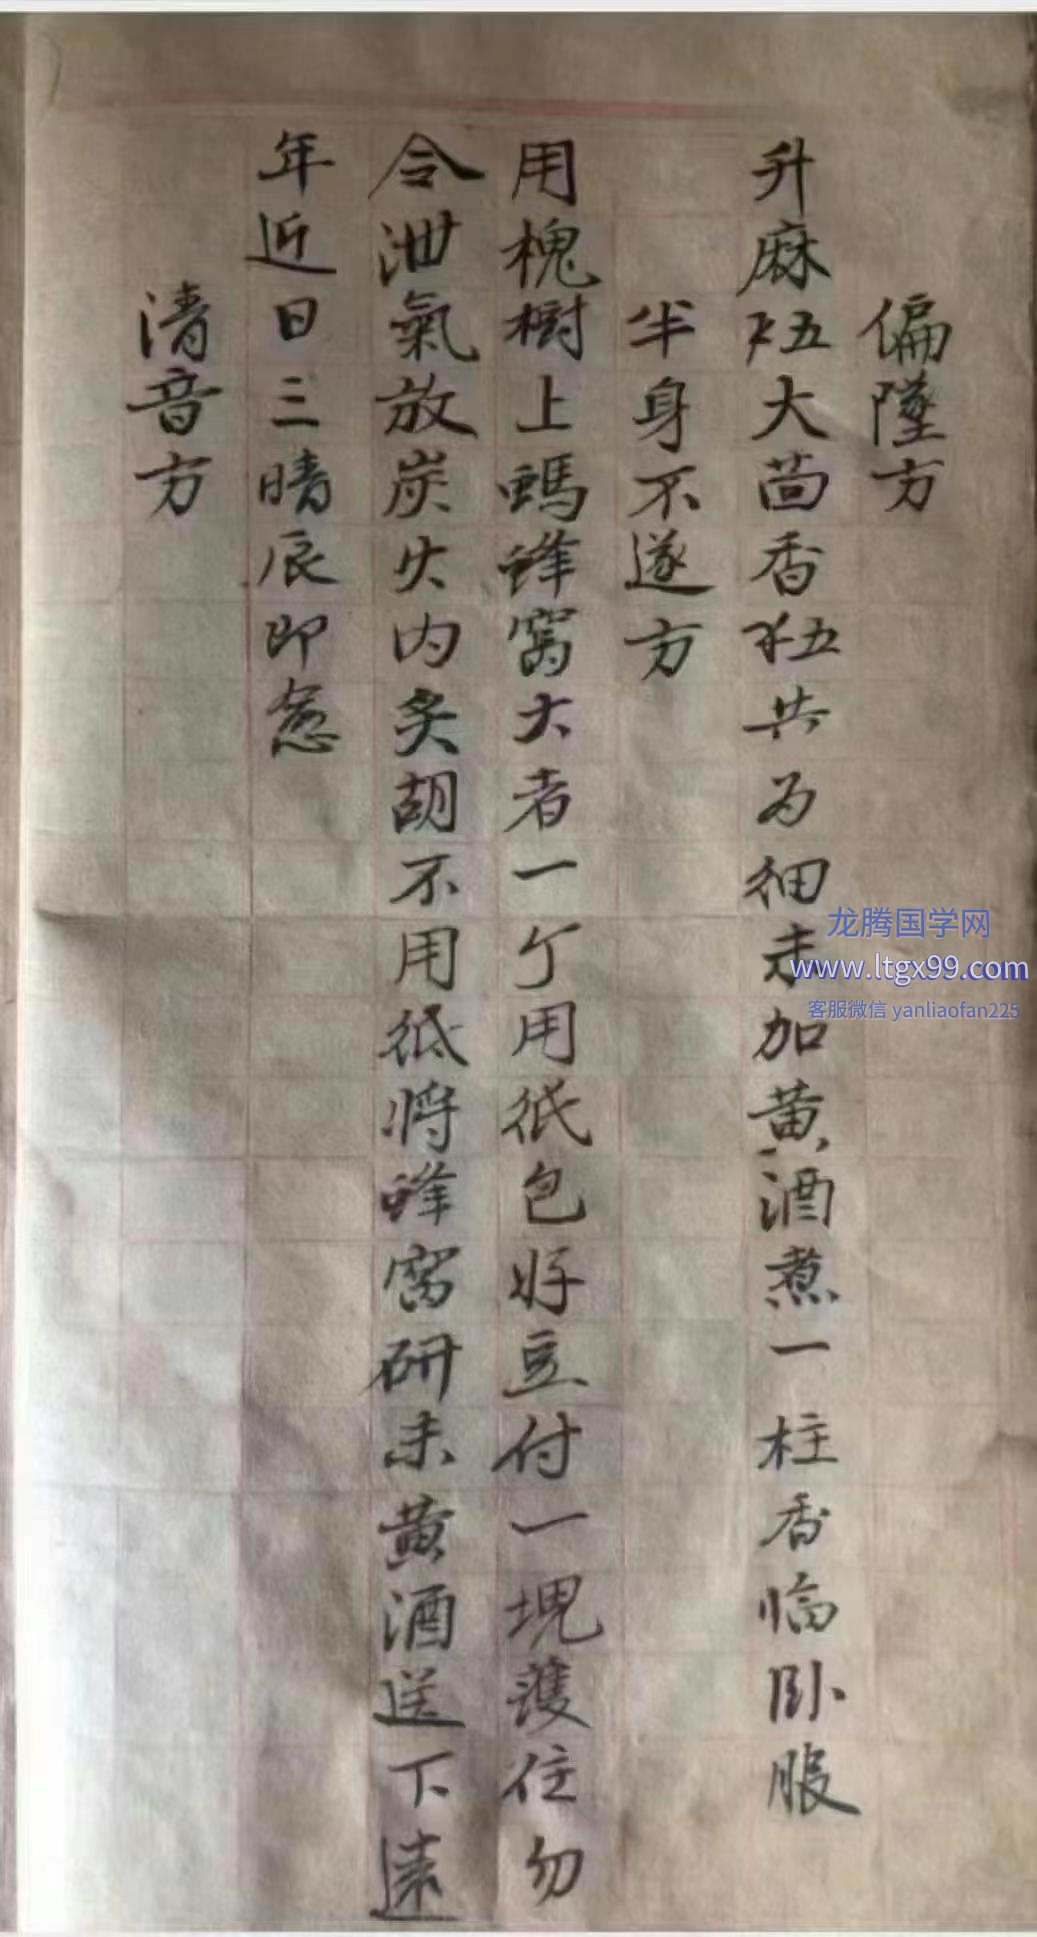 偏墜方
升麻五大茴香五共为細末加黄酒煮一柱香临卧服
半身不遂方
用槐樹上螞蜂窩大者一个用纸包好豆付一塊護住勿
令泄氣放炭火内炙胡不用纸将蜂窩研末黄酒送下遠
年近日三晴辰即愈
清音方
龙腾国学网
www.ltgx99.com
客服微信 yanliaofan225